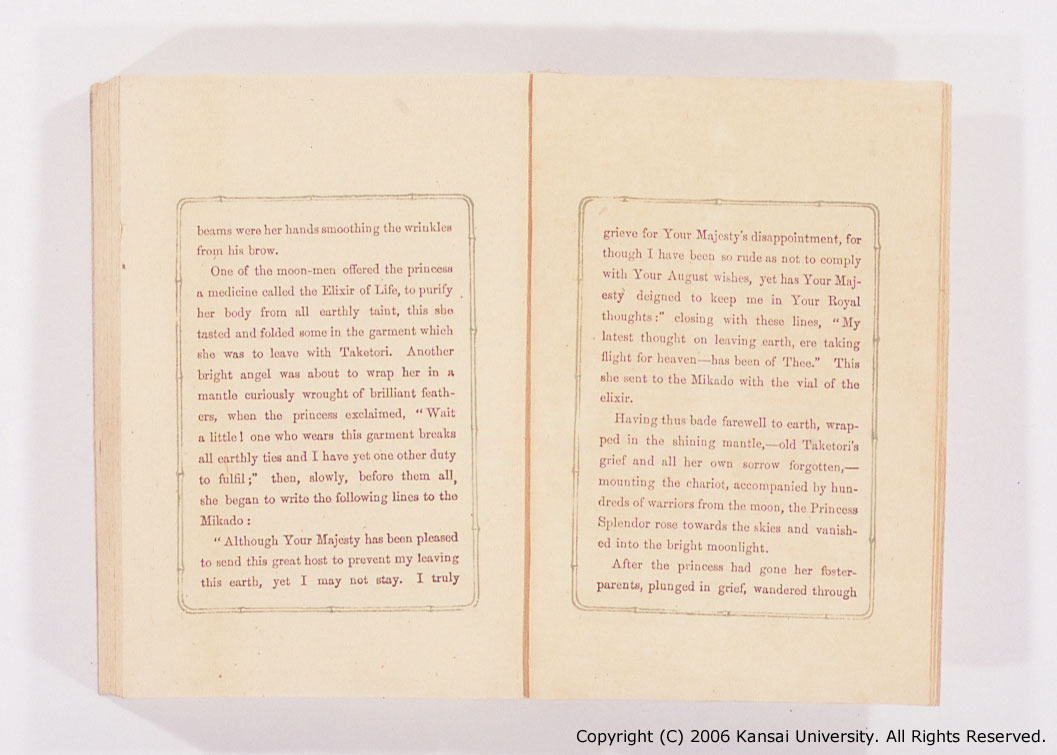 beams were her hands smoothing the wrinkles
from his brow.
One of the moon-men offered the princess
a medicine called the Elixir of Life, to purify
her body from all earthly taint, this she
tasted and folded some in the garment which
she was to leave with Taketori. Another
bright angel was about to wrap her in a
mantle curiously wrought of brilliant feath-
ers, when the princess exclaimed, “Wait
a little! one who wears this garment breaks
all earthly ties and I have yet one other duty
to fulfil;” then, slowly, before them all,
she began to write the following lines to the
Mikado:
“Although Your Majesty has been pleased
to send this great host to prevent my leaving
this earth, yet I may not stay. I truly
grieve for Your Majesty's disappointment, for
though I have been so rude as not to comply
with Your August wishes, yet has Your Maj-
esty deigned to keep me in Your Royal
thoughts:” closing with these lines, “My
latest thought on leaving earth, ere taking
flight for heaven—has been of Thee.” This
she sent to the Mikado with the vial of the
elixir.
Having thus bade farewell to earth, wrap-
ped in the shining mantle,—old Taketori's
grief and all her own sorrow forgotten,—
mounting the chariot, accompanied by hun-
dreds of warriors from the moon, the Princess
Splendor rose towards the skies and vanish-
ed into the bright moonlight.
After the princess had gone her foster-
parents, plunged in grief, wandered through
Copyright (C) 2006 Kansai University. All Rights Reserved.